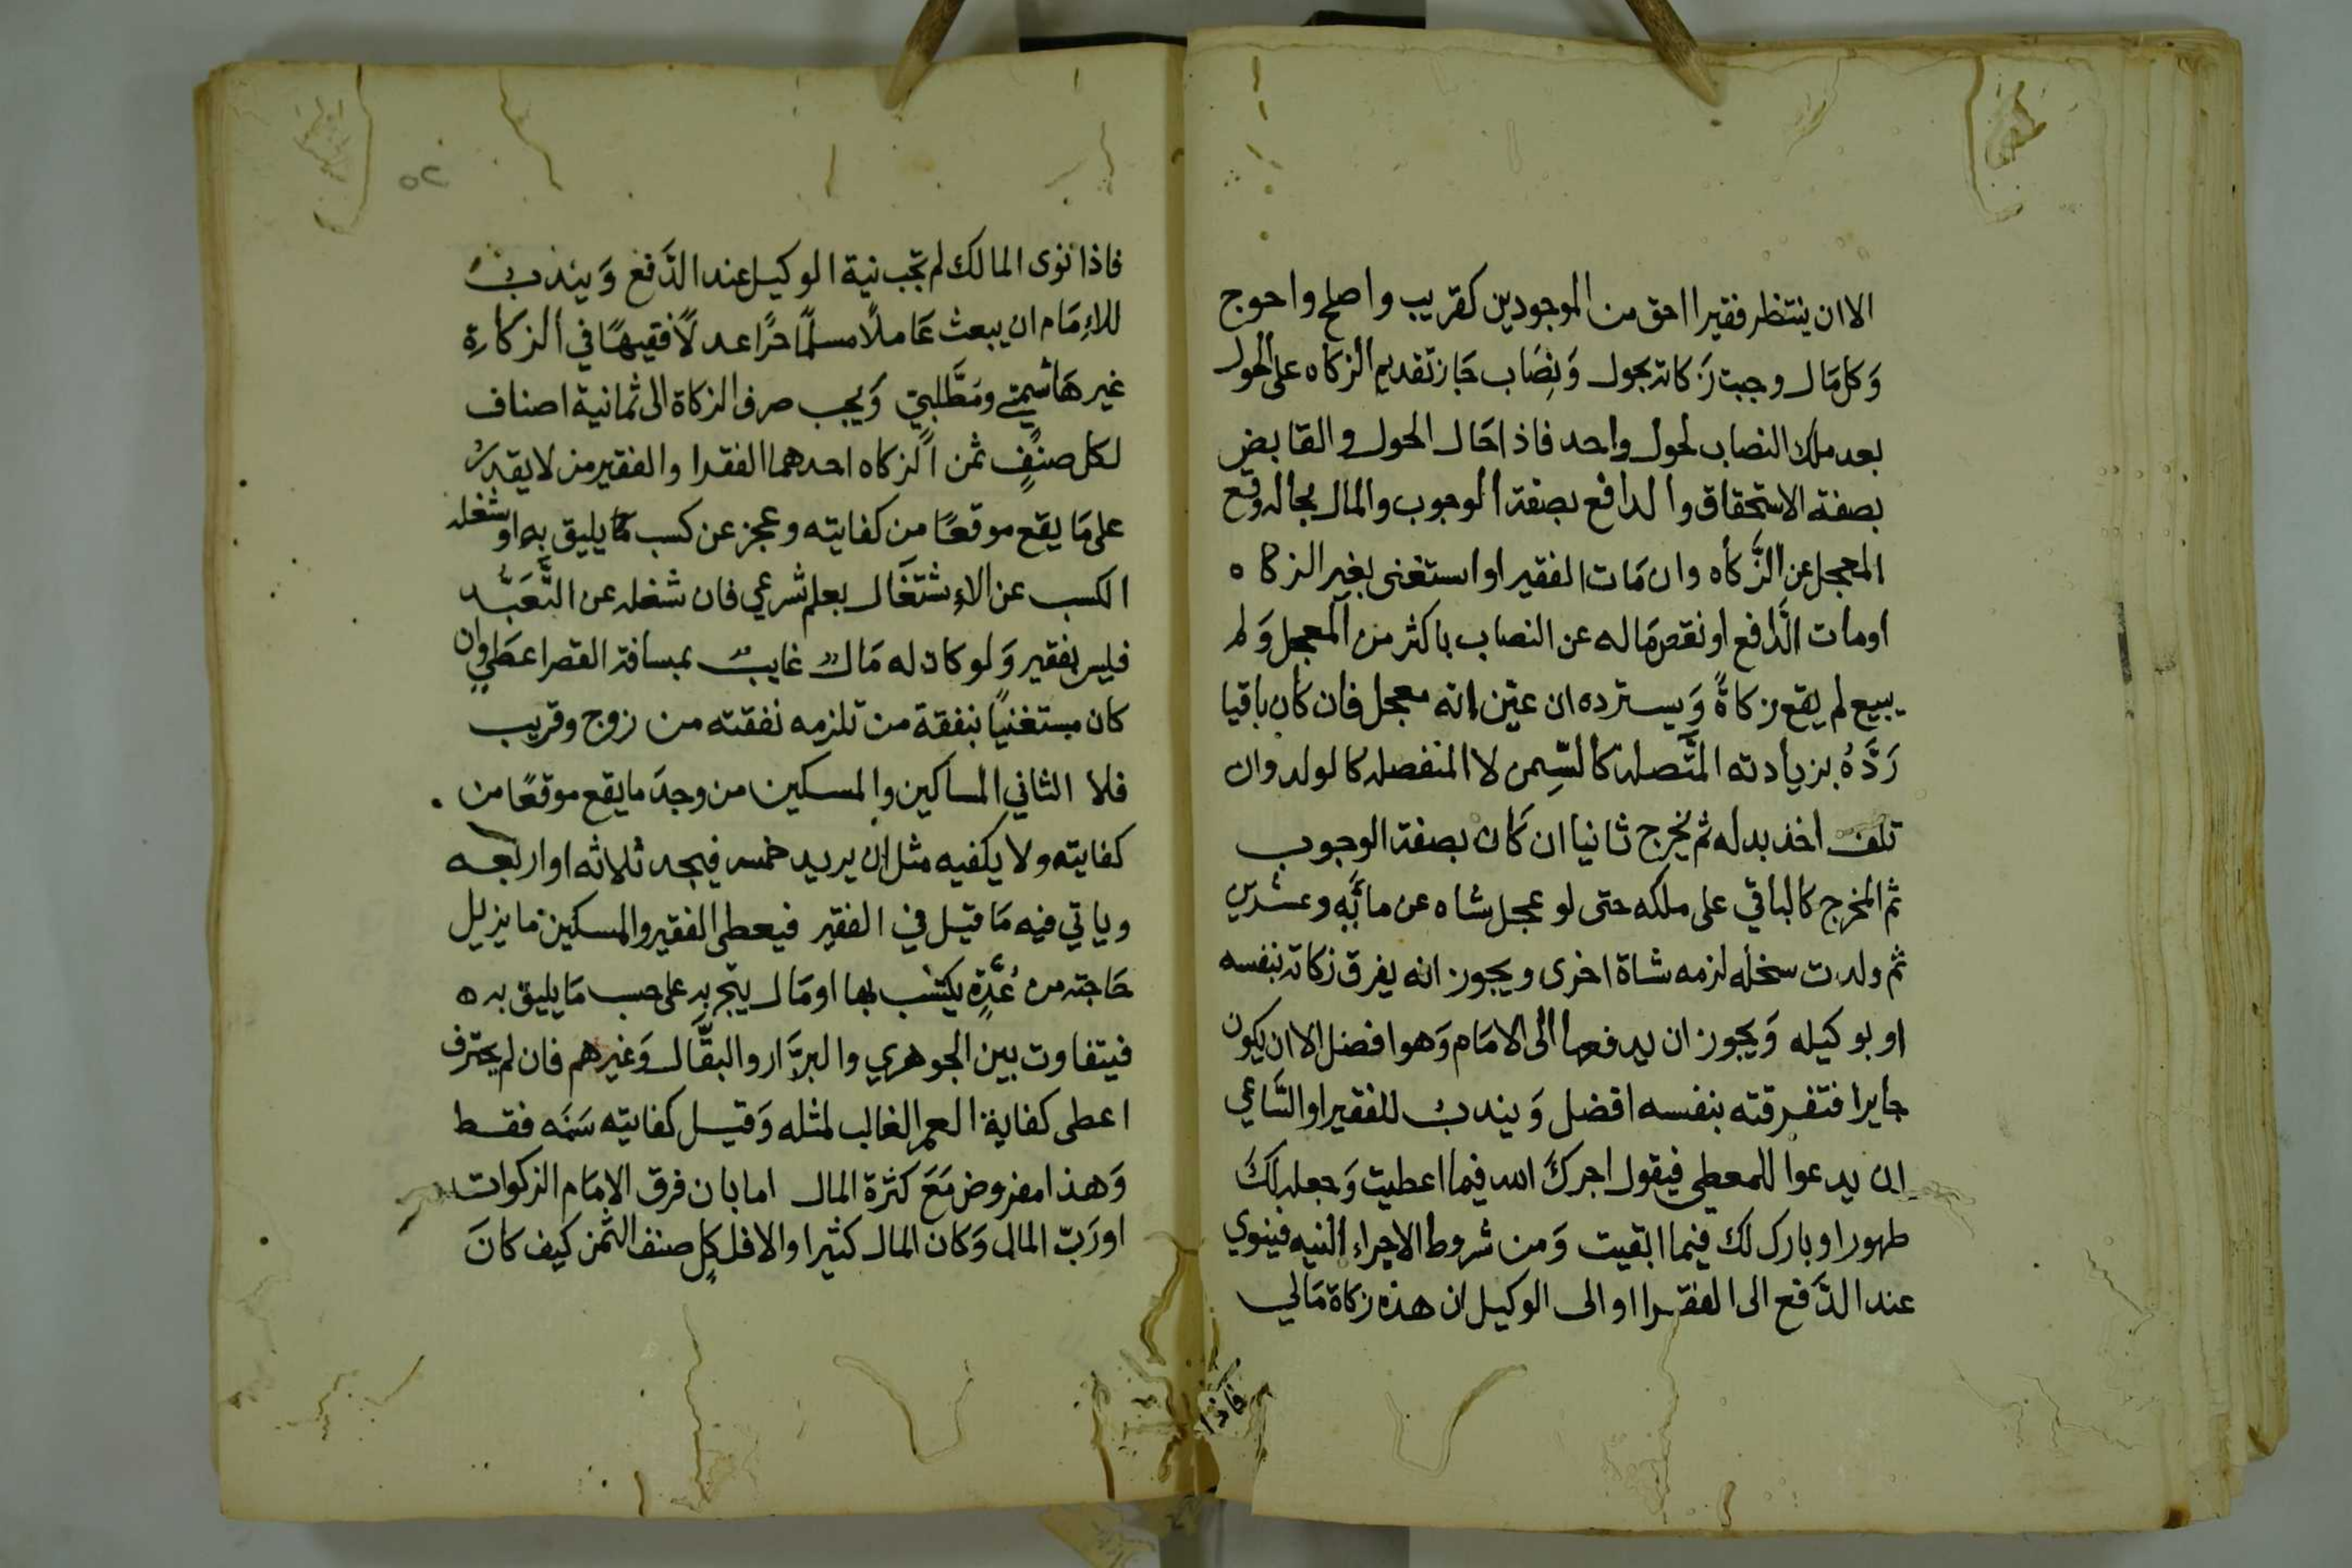 الا ان ينتظر فقيرا احق من الموجودين كقريب واصلح واحوج
وَكل مَال وجبت زَكاته بحول وَنِصَاب جَاز تقديم الزكاه على الحول
بعد ملك النصاب لحول واحد فاذا حَال الحول والقابض
بصفة الاستحقاق والدافع بصفة الوجوب والمال بحاله وقع
المعجل عن الزَّكاه وان مَات الفقير او استغنى بغير الزكاه
او مات الدَّافع او نقص مَاله عن النصاب باكثر من المعجل وَلو
ببيع لم يقع زكاةً وَيسترده ان عيّن انه معجل فان كان باقيا
رَدَّهُ بزيادته المتَّصله كالسِّمن لا المنفصله كالولد وان
تلف اخذ بدله ثم يخرج ثانيا ان كَان بصفة الوجوب
ثم المخرج كالباقي على ملكه حتى لو عجل شاه عن مائَه وعشرين
ثم ولدت سخله لزمه شاة اخرى ويجوز انه يفرق زكاته بنفسه
او بوكيله وَيجوز ان يدفعها الى الامَام وَهو افضل الا ان يكون
جايرا فتفرقته بنفسه افضل وَيندب للفقير او السَّاعي
ان يدعوا للمعطي فيقول اجركَ الله فيما اعطيت وَجعله لكَ
طهورا وبارك لك فيما ابقيت وَمن شروط الاجراء النيه فينوي
عند الدَّفع الى الفقرا او الى الوكيل ان هذه زكاة مَالي
فاذا
٥٢
فاذا نوى المالك لم تجب نية الوكيل عند الدَّفع وَيندبُ
للاِمَام ان يبعث عَاملًا مسلمًا حرًا عدلًا فقيهًا في الزكاةِ
غير هَاشميّ ومُطَّلبيّ وَيجب صرف الزكاة الى ثمانية اصناف
لكل صنفٍ ثمن الزكاه احدهما الفقرا والفقير من لا يقدرُ
على مَا يقع موقعًا من كفايته وعجز عن كسب كما يليق به او شغله
الكسب عن الاِشتغَال بعلم شرعي فان شغله عن التَّعَبُّد
فليس بفقير وَلو كان له مَالٌ غايبٌ بمسافة القصر اعطَي وان
كان مستغنيًا بنفقة من تلزمه نفقته من زوج وقريب
فلا الثاني المساكين والمسكين من وجدَ ما يقع موقعًا من
كفايته ولا يكفيه مثل ان يريد خمسه فيجد ثلاثه او اربعه
وياتي فيه مَا قيل في الفقير فيعطى الفقير والمسكين ما يزيل
حَاجته من عُدَّةٍ يكتسب بها او مَال يتّجر به على حسب مَا يليق به
فيتفاوت بين الجوهري والبزَّار والبقَّال وَغيرهم فان لم يحترف
اعطى كفاية العمر الغالب لمثله وَقيل كفايته سَنَه فقط
وَهذا مفروض مَعَ كثرة المال اما بان فرق الامَام الزكوات
او رَبّ المال وَكان المال كثيرا والا فلكل صنف الثمن كيف كانَ